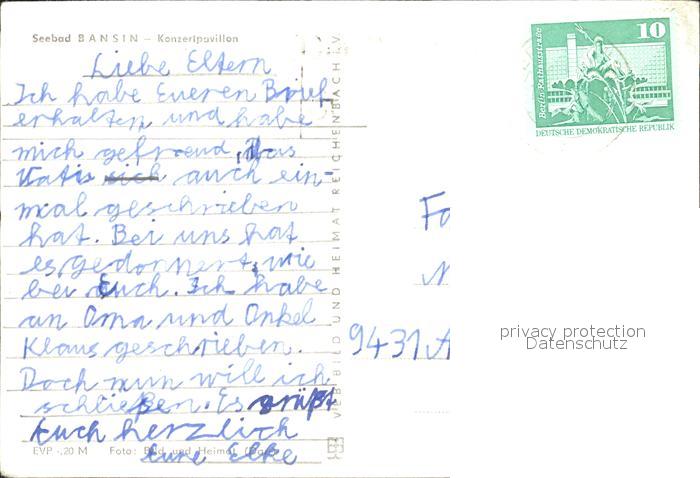 Seebad BANSIN – Konzertpavillon
Liebe Eltern
Ich habe Eueren Brief
erhalten und habe
mich gefreud, das
Vatis sich auch ein-
mal geschrieben
hat. Bei uns hat
es gedonnert, wie
bei Euch. Ich habe
an Oma und Onkel
Klaus geschrieben.
Doch nun will ich
schließen. Es grüßt
Euch herzlich
Eure Elke
EVP -,20 M Foto: Bild und Heimat
VEB BILD UND HEIMAT REICHENBACH I. V.
10
Berlin-Rathausstraße
DEUTSCHE DEMOKRATISCHE REPUBLIK
9431 A
privacy protection
Datenschutz